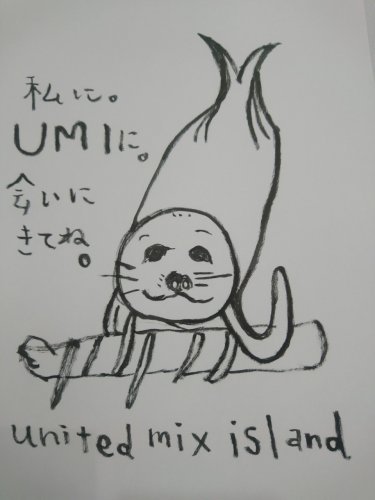 私に。
UMIに。
会いに
きてね。
united mix island